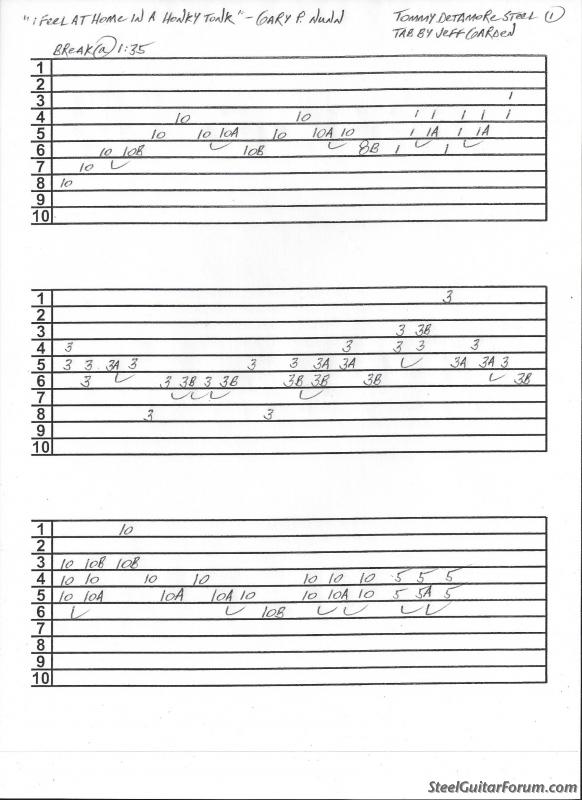 "i FEEL AT HOME IN A HONKY TONK" - GARY P. NUNN
TOMMY DETAMORE STEEL 1
TAB BY JEFF GARDEN
BREAK @ 1:35
1
2
3 1
4 10 10 1 1 1 1 1
5 10 10 10A 10 10A 10 1 1A 1 1A
6 10 10B 10B 8B 1 1
7 10
8 10
9
10
1 3
2
3 3 3B
4 3 3 3 3 3
5 3 3 3A 3 3 3 3A 3A 3A 3A 3
6 3 3 3B 3 3B 3B 3B 3B 3B
7
8 3 3
9
10
1 10
2
3 10 10B 10B
4 10 10 10 10 10 10 10 5 5 5
5 10 10A 10A 10A 10 10 10A 10 5 5A 5
6 10B
7
8
9
10
SteelGuitarForum.com